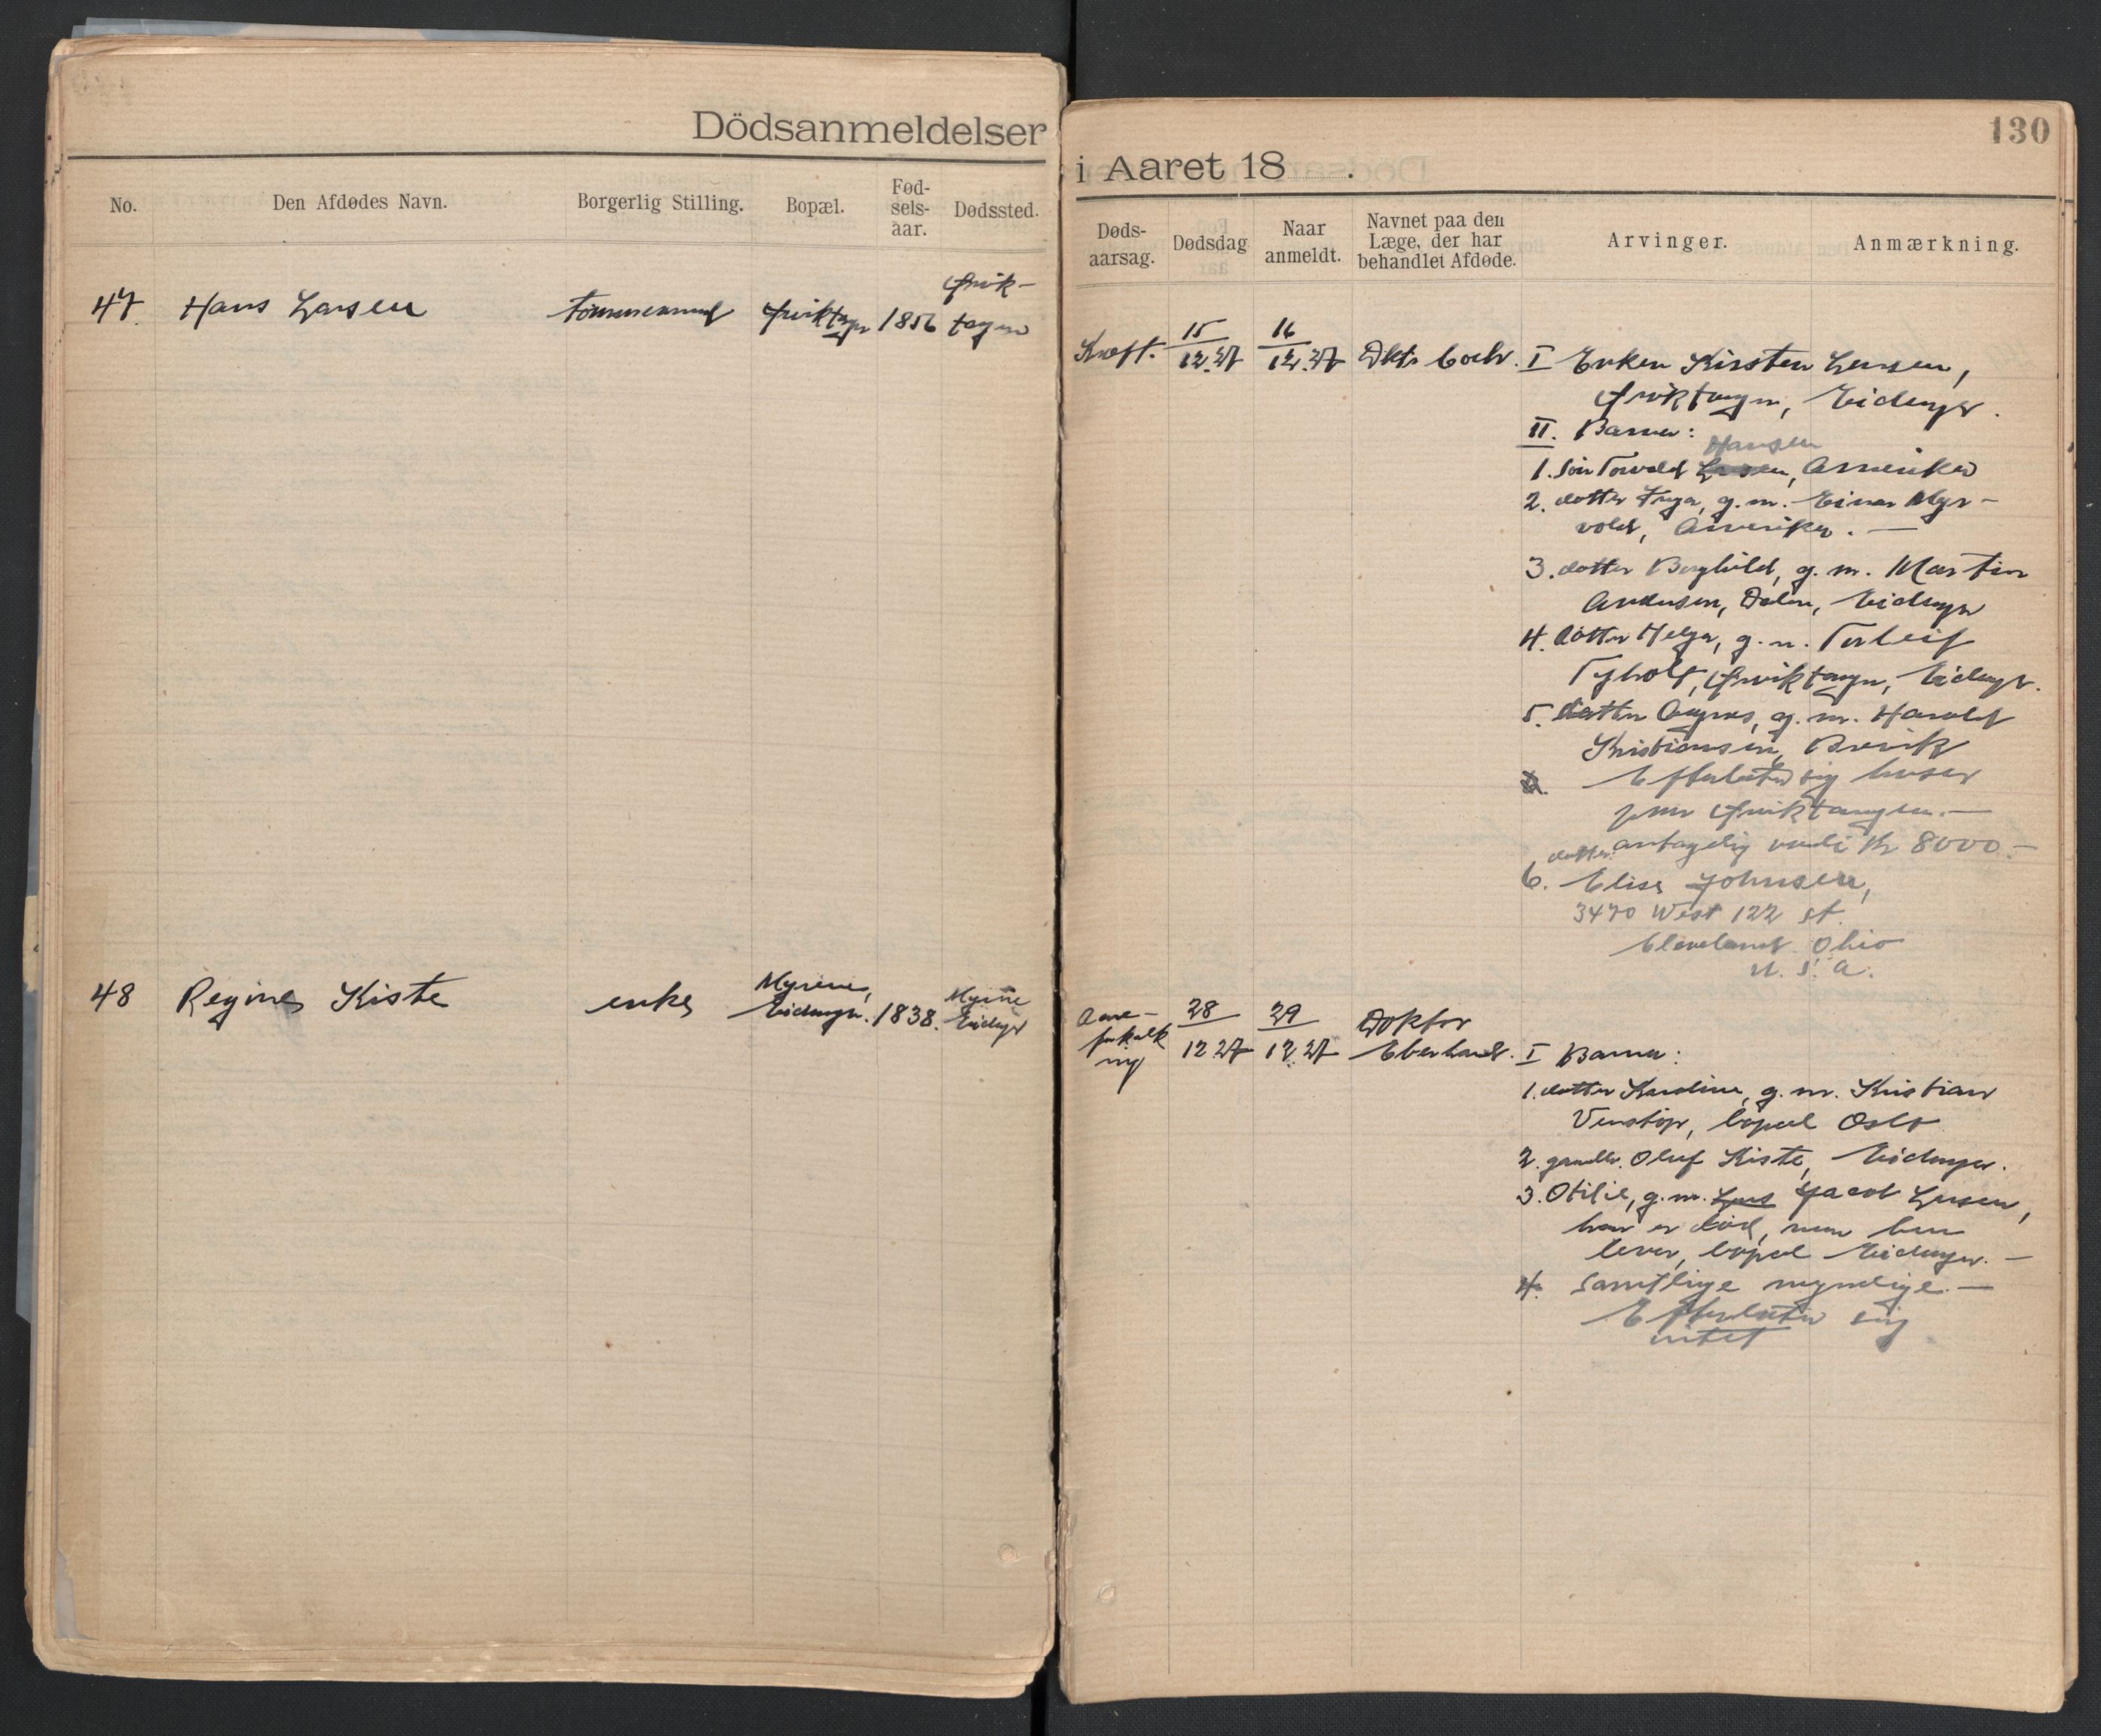 Dödsanmeldelser
i Aaret 18 .
130
No.
Den Afdødes Navn.
Borgerlig Stilling.
Bopæl.
Fød-
sels-
aar.
Dødssted.
Døds-
aarsag.
Dødsdag
Naar
anmeldt.
Navnet paa den
Læge, der har
behandlet Afdøde.
Arvinger.
Anmærkning.
47. Hans Larsen
tømmermand
1856
Kræft.
15/12.27
16/12.27
I Enken Kirsten Larsen,
Eidanger.
II. Barna:
Hansen
1. søn Torvald Larsen, Amerika
2. datter Inga, g. m. Einar Myr-
vold, Amerika. —
3. datter Borghild, g. m. Martin
Andersen, Dalen, Eidanger
4. datter Helga, g. m. Torleif
Tyholt, Eidanger.
5. datter Agnes, g. m. Harald
Kristiansen, Brevik
Efterlater sig huset
antagelig verdi Kr 8000.—
datter
6. Elise Johnsen,
3470 West 122 st.
Cleveland Ohio
U. S. A.
48 Regine Kiste
enke
Myrene,
Eidanger.
1838.
Myrene
Eidanger
Aare-
forkalk
ning
28/12 27
29/12.27
Doktor
I Barna:
1. datter Karoline, g. m. Kristian
Venstøp, bopæl Oslo
2. Oluf Kiste, Eidanger.
3. Otilie, g. m. Lars Jacob Larsen,
han er død, men hun
lever, bopæl Eidanger. —
4. Samtlige myndige. —
Efterlater sig
intet